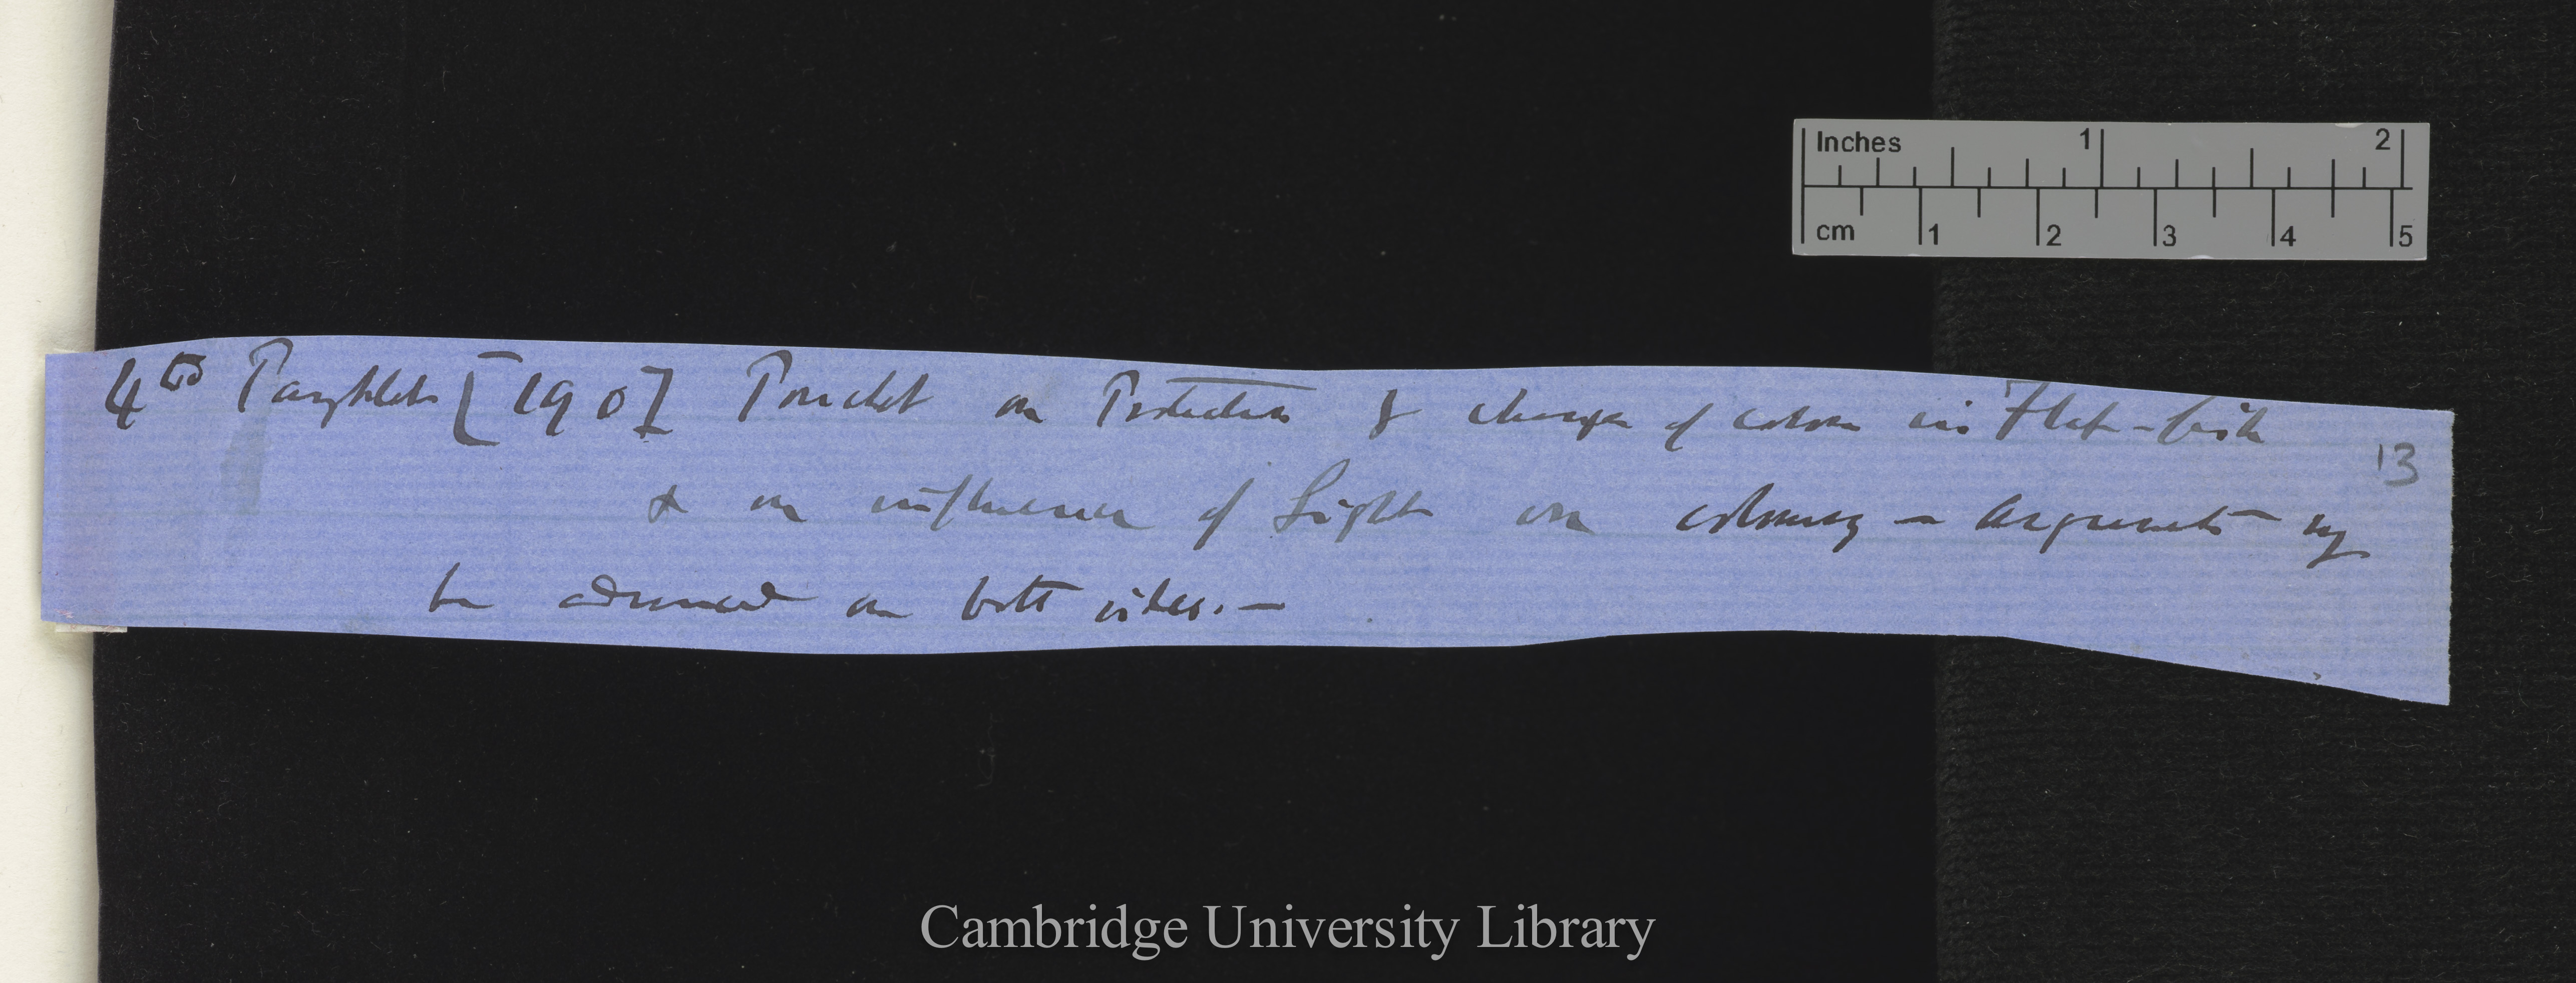 Inches 1 2
cm 1 2 3 4 5
4to Pamphlets [190] Pouchet on Protection & change of colour in Flat-fish
13
& on influence of Light on colouring — arguments may
be advanced on both sides. —
Cambridge University Library